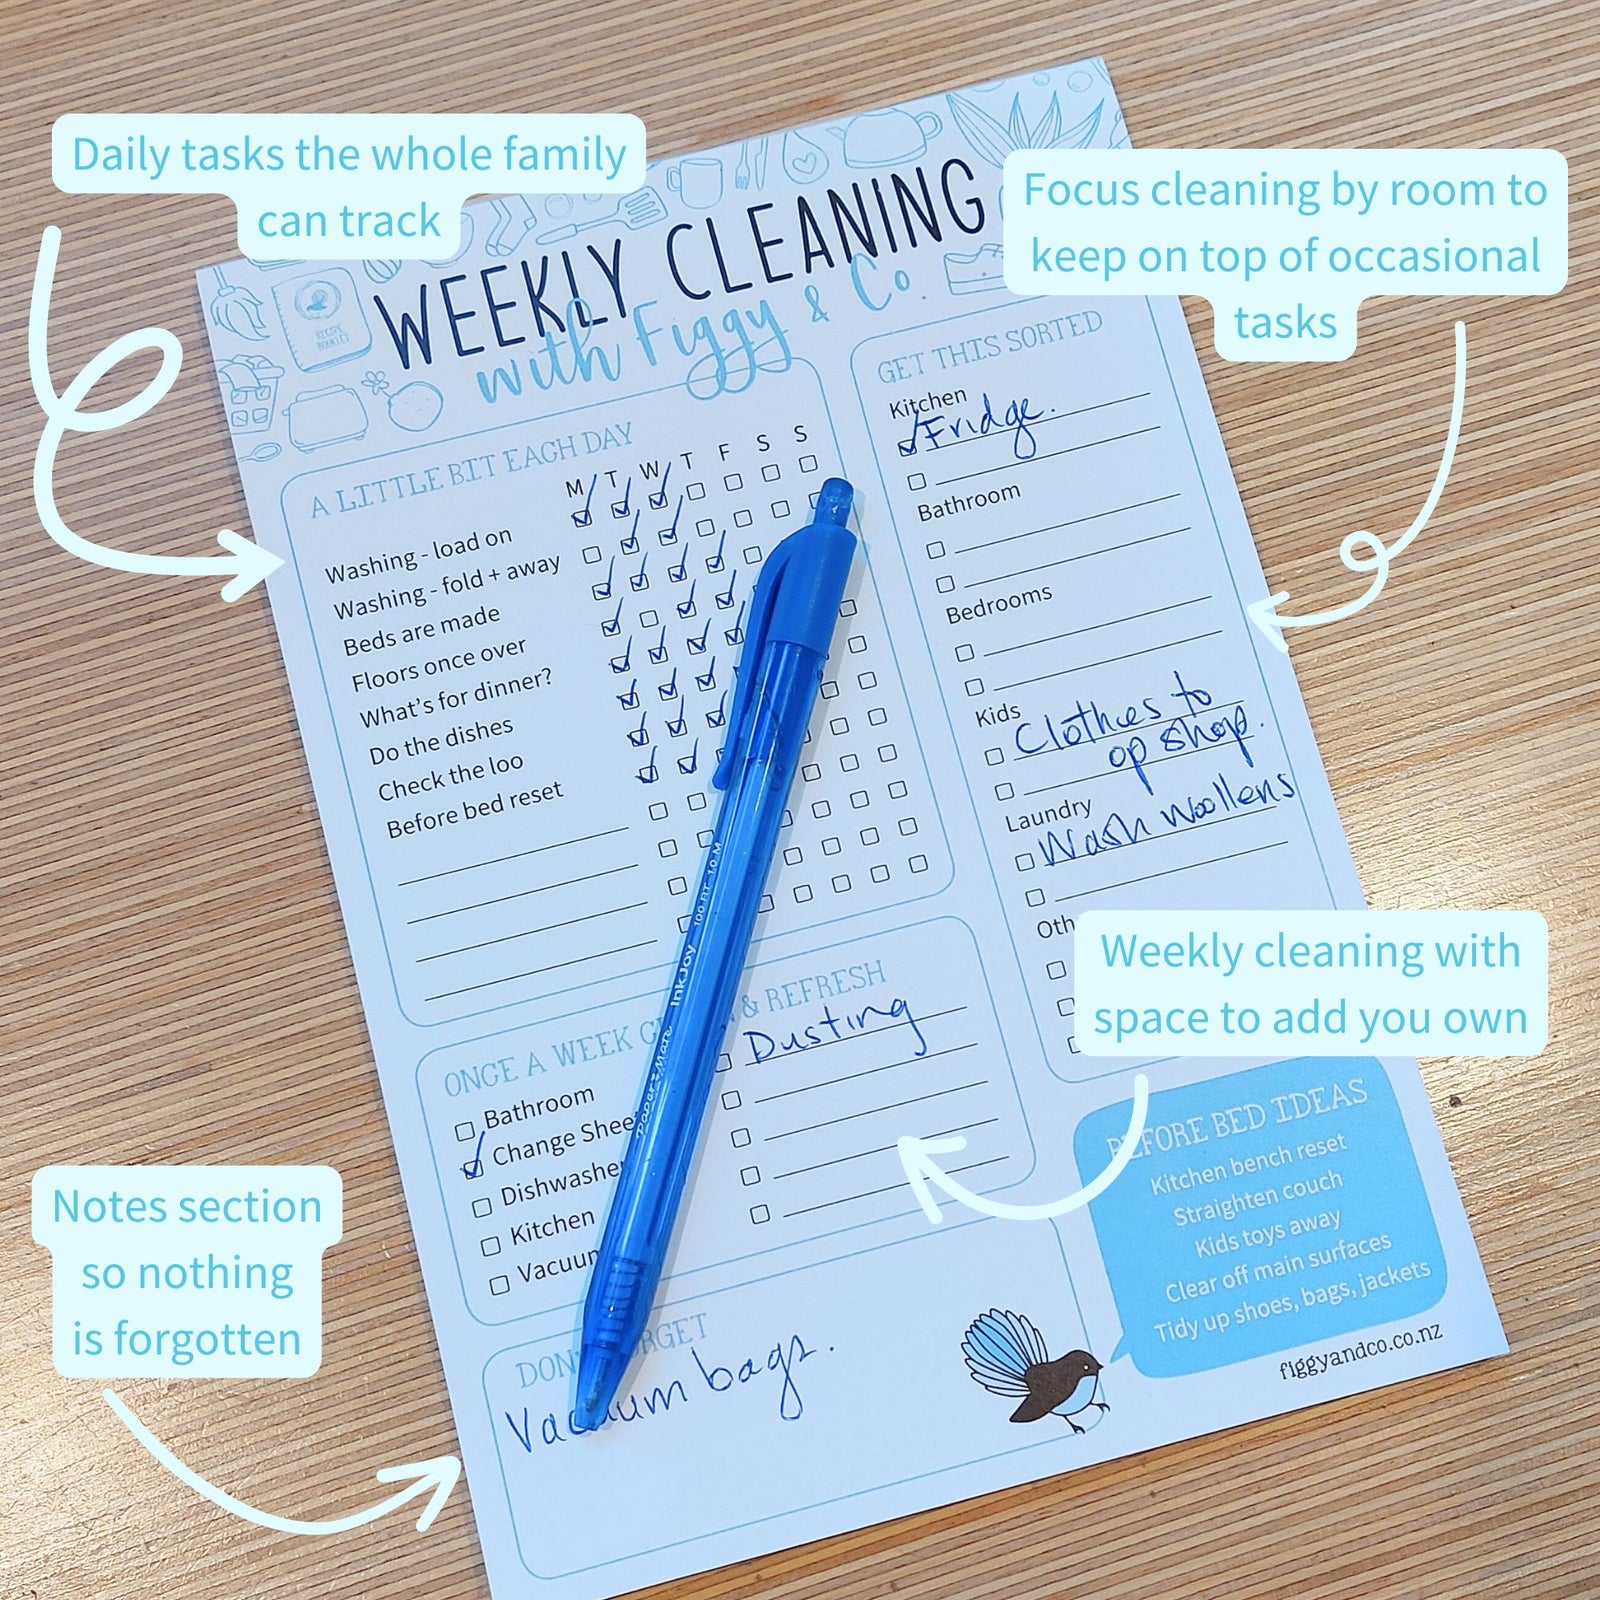 Daily tasks the whole family
can track
Focus cleaning by room to
keep on top of occasional
tasks
WEEKLY CLEANING
with Figgy & Co.
RECIPE
BOOKLET
A LITTLE BIT EACH DAY
M T W T F S S
Washing - load on
Washing - fold + away
Beds are made
Floors once over
What's for dinner?
Do the dishes
Check the loo
Before bed reset
GET THIS SORTED
Kitchen
Fridge.
Bathroom
Bedrooms
Kids
Clothes to
op shop.
Laundry
Wash woollens
Weekly cleaning with
space to add you own
ONCE A WEEK & REFRESH
Bathroom
Change
Dishwasher
Kitchen
Vacuum
Dusting
PaperMate InkJoy 100 RT 1.0 M
BEFORE BED IDEAS
Kitchen bench reset
Straighten couch
Kids toys away
Clear off main surfaces
Tidy up shoes, bags, jackets
figgyandco.co.nz
Notes section
so nothing
is forgotten
Vacuum bags.